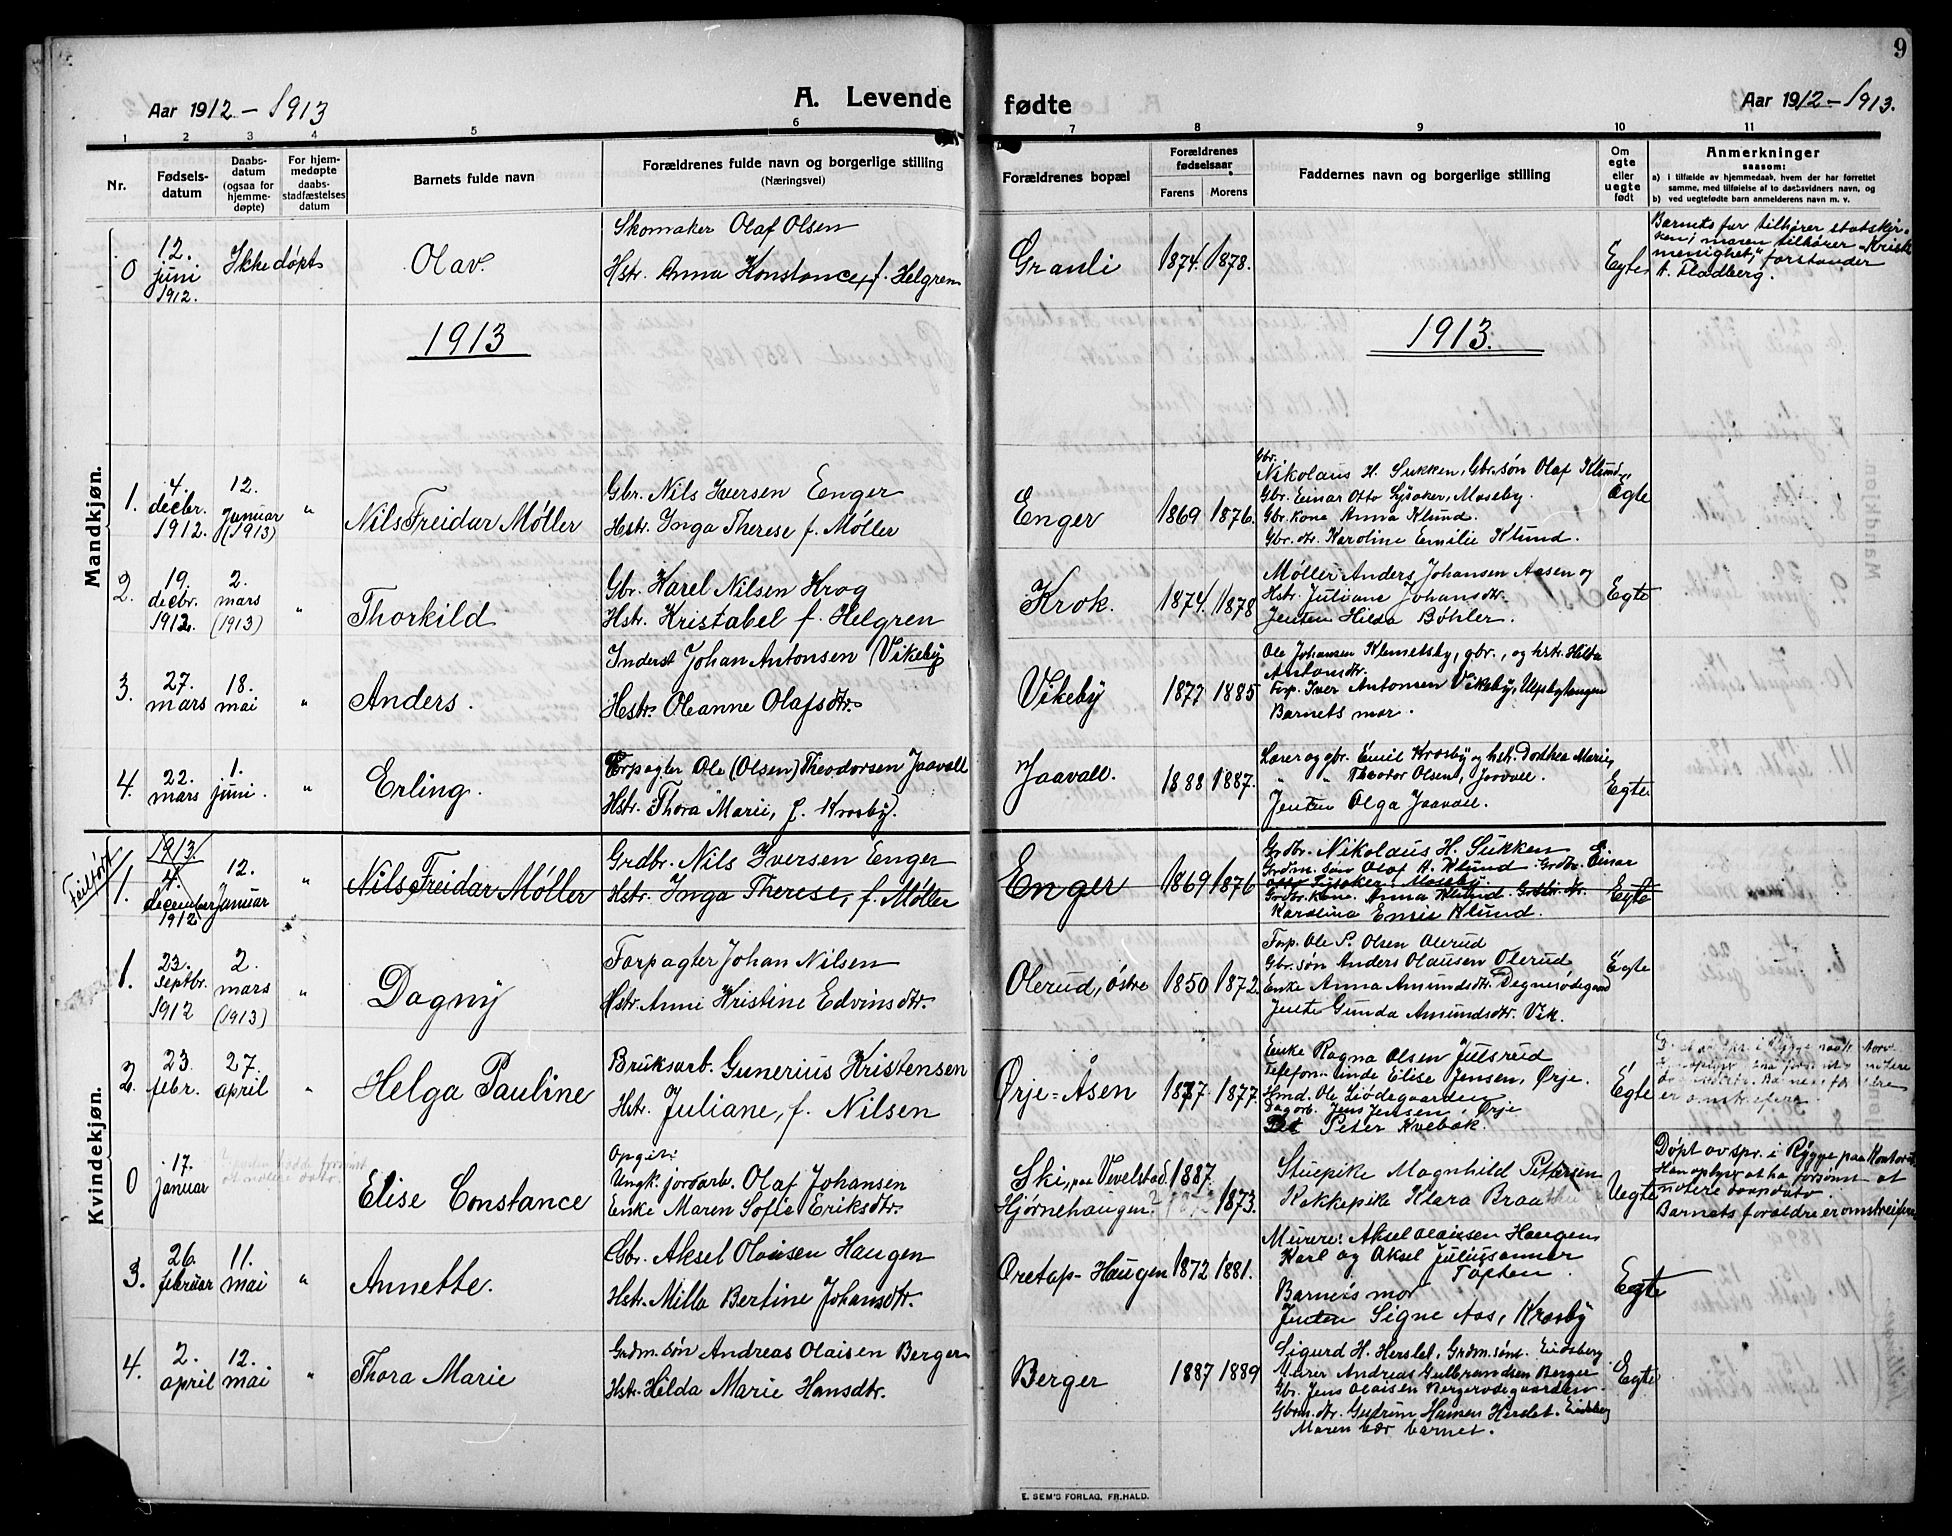 9
Aar 1912 - 1913
A. Levende
fødte
Aar 1912 - 1913.
1 2 3 4 5 6 7 8 9 10 11
Nr.
Fødsels-
datum
Daabs-
datum
(ogsaa for
hjemme-
døpte)
For hjem-
medøpte
daabs-
stadfæstelses
datum
Barnets fulde navn
Forældrenes fulde navn og borgerlige stilling
(Næringsvei)
Forældrenes bopæl
Forældrenes
fødselsaar
Farens Morens
Faddernes navn og borgerlige stilling
Om
egte
eller
uegte
født
Anmerkninger
saasom:
a) i tilfælde av hjemmedaab, hvem der har forrettet
samme, med tilføielse af to daabsvidners navn, og
b) ved uegtefødte barn anmelderens navn m. v.
Mandkjøn.
0
12.
juni
1912.
Ikke døpt
Olav.
Skomaker Olaf Olsen
Hstr. Anna Konstance, f. Helgrem
Granli
1874. 1878.
Egte
Barnets far tilhører statskir-
ken; moren tilhører "Krist.
menighet", forstander
A. Fladberg.
1913
1913.
1.
4.
decbr.
1912.
12.
Januar
(1913)
"
Nils Freidar Møller
Gbr. Nils Iversen Enger
Hstr. Inga Therese f. Møller
Enger
1869 1876.
Gbr.
Nikolaus H. Sukken, Gbr. søn Olaf Klund,
Gbr. Einar Otto Lysaker, Moseby.
Gbr. kone Anna Klund.
Gbr. dtr. Karoline Emilie Klund.
Egte
2.
19.
decbr.
1912.
2.
mars
(1913)
"
Thorkild
Gbr. Karel Nilsen Krog
Hstr. Kristabel f. Helgren
Krok.
1874. 1878
Møller Anders Johansen Aasen og
Hstr. Juliane Johansdtr.
Jenten Hilda Bøhler.
Egte
3.
27.
mars
18.
mai
"
Anders.
Inderst Johan Antonsen Vikeby
Hstr. Oleanne Olafsdtr.
Vikeby
1877 1885
Ole Johansen Klemetsby, gbr., og hstr. Hilda
Antonsdtr.
Forp. Iver Antonsen Vikeby, Ulpsbytangen
Barnets mor.
4.
22.
mars
1.
juni.
"
Erling.
Forpagter Ole (Olsen) Theodorsen Jaavall
Hstr. Thora Marie, f. Krosby.
Jaavall.
1888 1887.
Lærer og gbr. Emil Krosby og hstr. Dorthea Marie,
" " Theodor Olsen, Jaavall.
Jenten Olga Jaavall.
Egte
Kvindekjøn.
Feilført
1.
1913.
4.
december
1912
12.
Januar
"
Nils Freidar Møller
Grdbr. Nils Iversen Enger
Hstr. Inga Therese, f. Møller
Enger
1869 1876
Grdbr. Nikolaus H. Sukken
Grdm. søn Olof A. Klund Grdbr. Einar
Otto Lysaker, Moseby.
Grdbr. kone Anna Klund Grdbr. dtr.
Karolina Emie Klund.
Egte
1.
23.
septbr.
1912
2.
mars
(1913)
"
Dagny
Forpagter Johan Nilsen
Hstr. Anne Kristine Edvinsdtr.
Olerud, østre
1850 1872.
Forp. Ole P. Olsen Olerud
Gbr. søn Anders Olausen Olerud
Enke Anna Amundsdtr. Degnesødegaard
Jente Gunda Amundsdtr. Vik.
Egte
2.
23.
febr.
27.
april
"
Helga Pauline
Bruksarb. Gunerius Kristensen
Hstr. Juliane, f. Nilsen
Ørje-Åsen
1877. 1877.
Enke Ragna Olsen Julsrud
Telefoninde Elise Jensen, Ørje.
Hmd. Ole Liødegaarden
Dagarb. Jens Jensen, Ørje
Peter Kvebæk.
Egte
0
17.
januar
Elise Constance
Opgit:
Ungk. jordarb. Olaf Johansen
Enke Maren Sofie Eriksdtr.
Ski, paa Vevelstad
Hjørnehaugen?
1887.
1873.
Stuepike Magnhild Pettersen
Kokkepike Klara Braathe
Uegte
Døpt av spr. i Rygge paa Kontoret.
Han oplyser at ha forsømt at
notere daapdato.
Barnets forældre er omstreifere
3.
26.
februar
11.
mai
"
Annette.
Gbr. Aksel Olaisen Haugen
Hstr. Milla Bertine Johansdtr.
Øretop-Haugen
1872 1881.
Murere: Aksel Olaissen Haugen
Karl og Aksel Juliussønner
Tøpten.
Barnets mor
Jenten Signe Aas, Krosby
Egte
4.
2.
april
12.
mai
"
Thora Marie
Grdm. søn Andreas Olaisen Berger
Hstr. Hilda Marie Hansdtr.
Berger
1887 1889
Sigurd H. Herslet, Grdm. sønt. Eidsberg.
Murer Andreas Gulbrandsen Berger
Gbr. Jens Olaisen Bergerødegaarden.
Gbrm. dtr. Gudrun Hansen Herslet. Eidsberg
Moren bær barnet.
Egte
E. SEM'S FORLAG, FR.HALD.